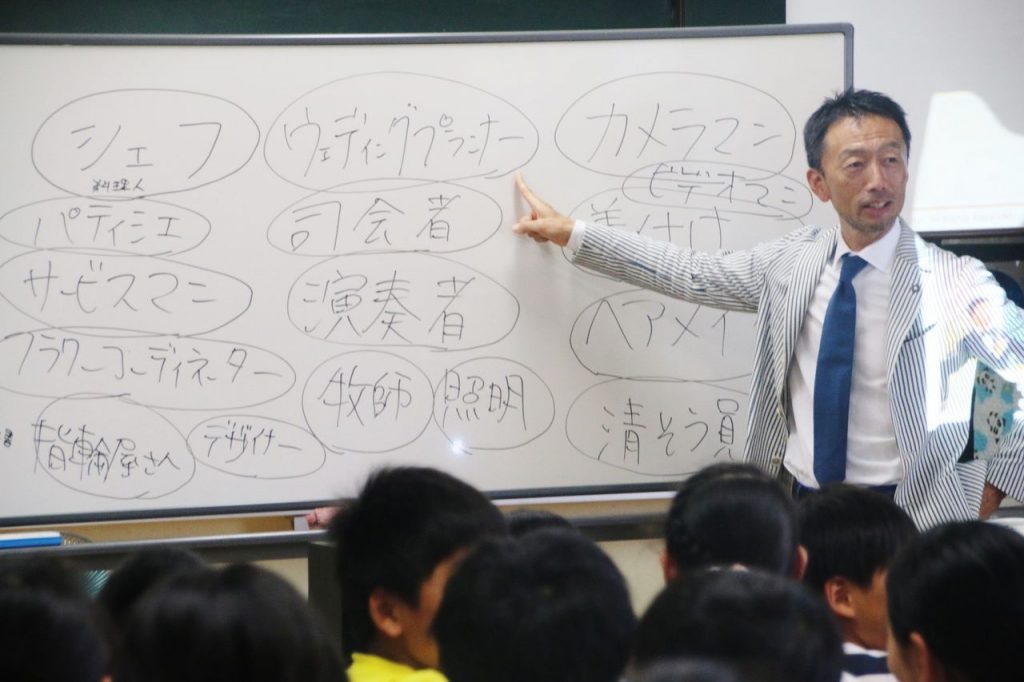 シェフ
料理人
パティシエ
サービスマン
フラワーコーディネーター
指輪屋さん
デザイナー
ウェディングプランナー
司会者
演奏者
牧師
照明
カメラマン
ビデオマン
着付け
ヘアメイ
清そう員